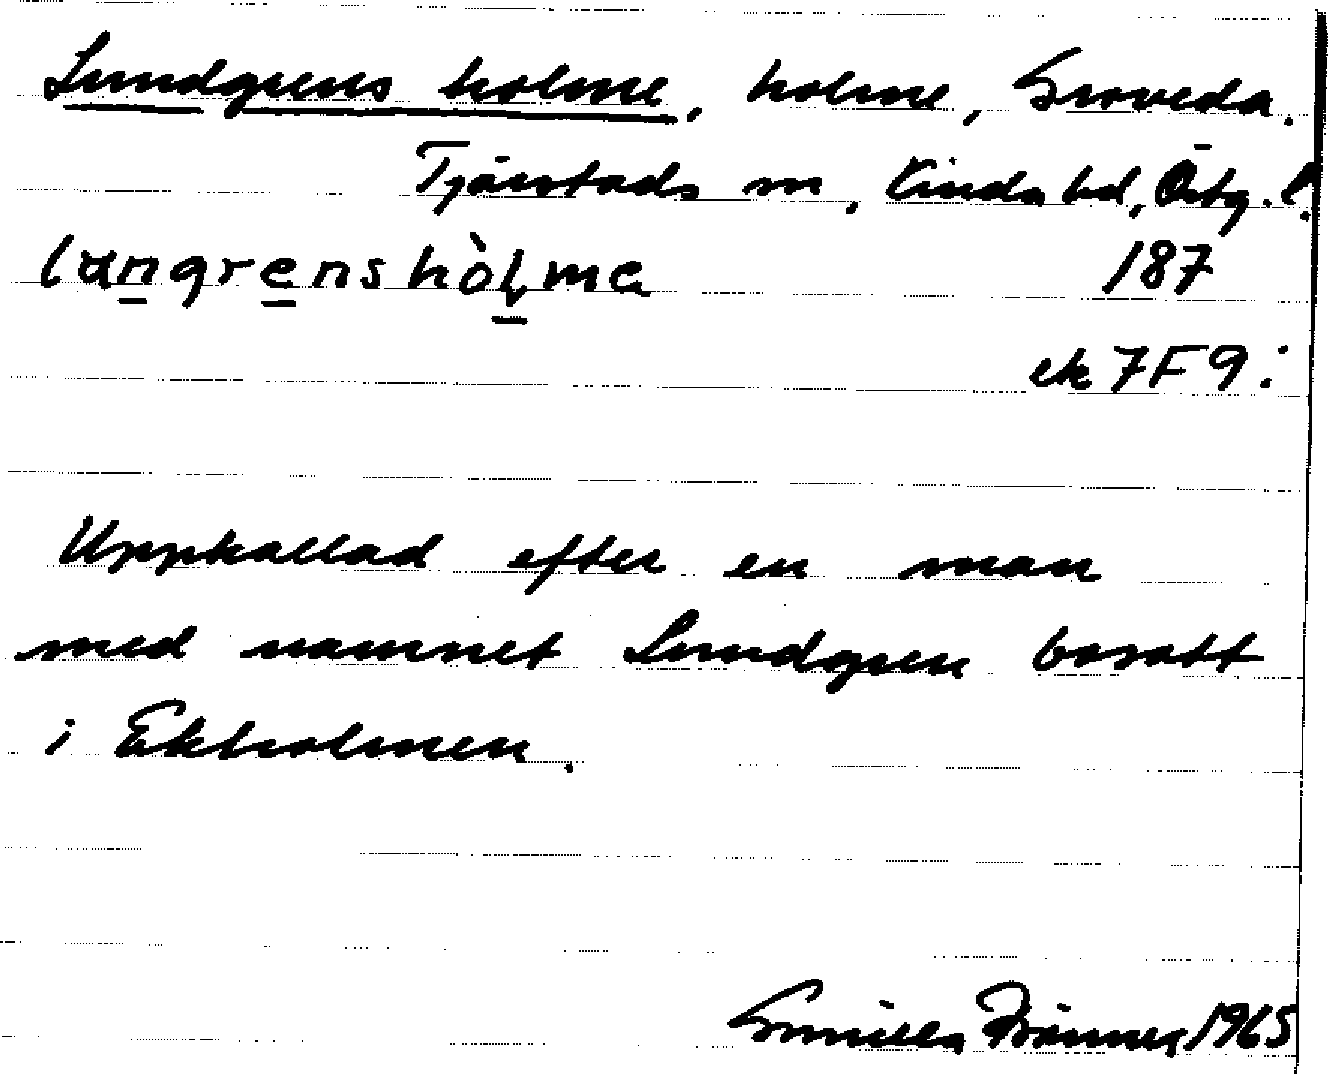 Lundgrens holme, holme, Groveda.
Tjärstads sn, Kinda hd, Östg. l.
lungrenshòlme 187
ek 7F9:
Uppkallad efter en man
med namnet Lundgren bosatt
i Ekholmen.
Gunilla 1965